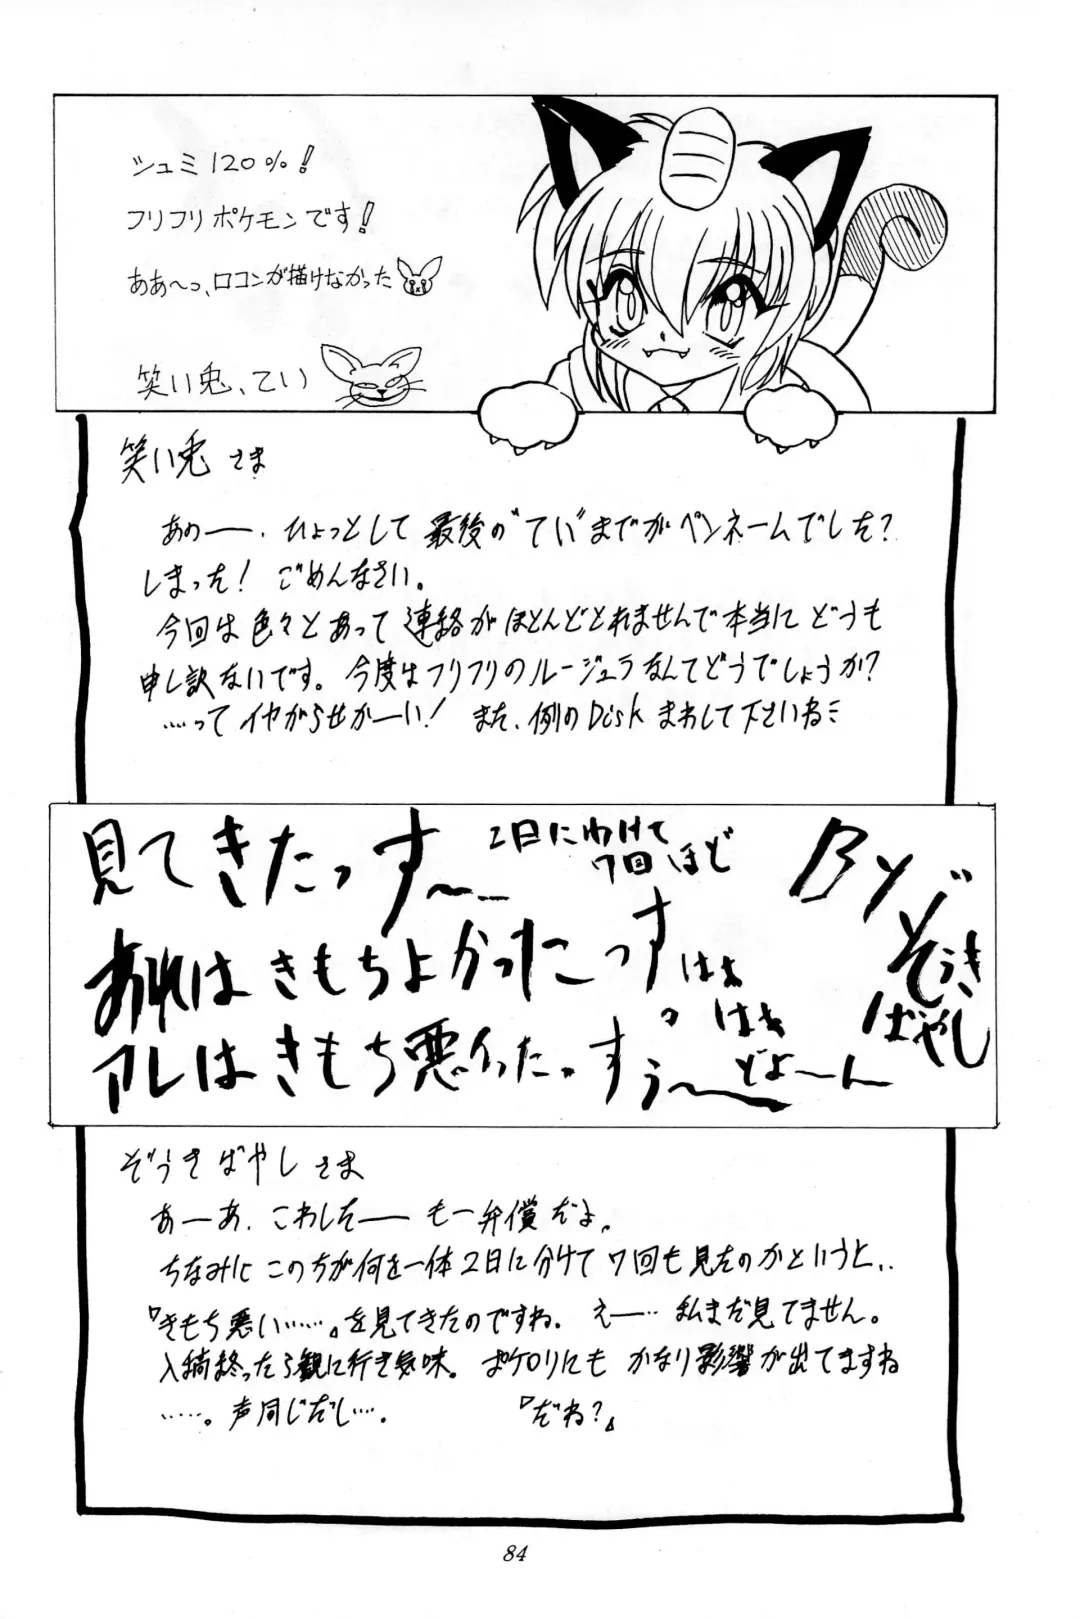 シュミ120%!
フリフリポケモンです!
ああ～っ、ロコンが描けなかった
笑い兎、てい
笑い兎 さま
あのー、ひょっとして最後の"てい"までがペンネームでした?
しまった! ごめんなさい。
今回は色々とあって連絡がほとんどとれませんで本当にどうも
申し訳ないです。今度はフリフリのルージュラなんてどうでしょうか?
……ってイヤがらせかーい! また、例のDiskまわして下さいね
見てきたっす～
2日にわけて
7回ほど
あれはきもちよかったっす
はぁ
はぁ
アレはきもち悪イったっすぅ～
どよ～ん
By
ぞうき
ばやし
ぞうきばやしさま
あーあ、こわしたー も一弁償だよ。
ちなみにこの方が何を一体2日に分けて7回も見たのかというと、、
『きもち悪い……。』を見てきたのですね。えー…私まだ見てません。
入稿終ったら観に行き気味。ポケロリにもかなり影響が出てますね
……。声同じだし…。 『だね?』
84